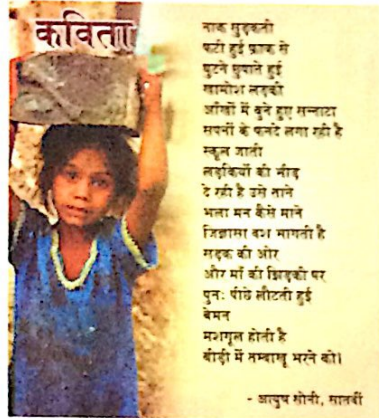 कविता
नाक सुड़कती
फटी हुई फ्राक से
घुटने छुपाते हुई
खामोश लड़की
आँखों में बुने हुए सन्नाटा
सपनों के फनदे लगा रही है
स्कूल जाती
लड़कियों की भीड़
दे रही है उसे ताने
भला मन कैसे माने
जिज्ञासा वश भागती है
सड़क की ओर
और माँ की झिड़की पर
पुनः पीछे लौटती हुई
बेमन
मशगूल होती है
बीड़ी में तम्बाखू भरने को।
- आयुष सोनी, सातवीं